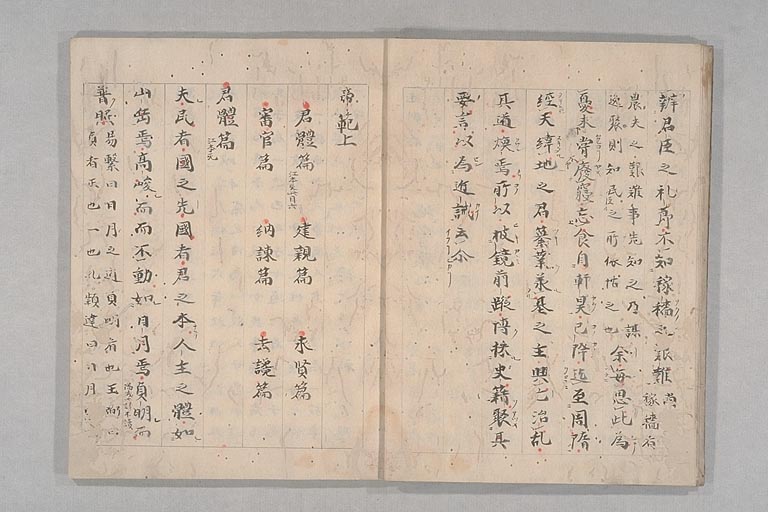 辨君臣之礼節不知稼穡之艱難
稼穡者
農夫之艱難事先知之乃謀
逸聚則知民之所依怙之也 余每思此為
憂未甞廢寢忘食自軒昊已降迄至周隋
經天緯地之君纂業承基之主興亡治乱
其道煥焉所以披鏡前蹤博採史籍聚其
要言以為近誡云尒
帝範上
君體篇 建親篇 求賢篇
審官篇 納諌篇 去讒篇
君體篇 江本无
夫民者國之先國者君之本人主之體如
山岳焉高峻而不動如日月焉貞明而
普照 易繋曰日月之道貞明者也王弼曰
貞者正也一也孔穎達曰日月